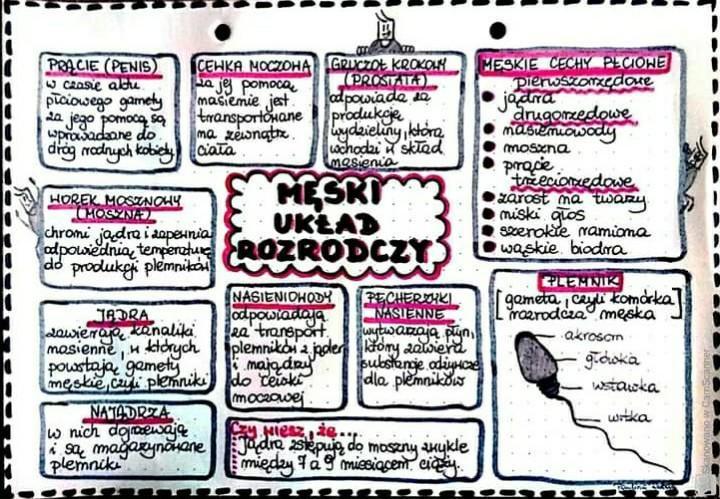 PRĄCIE (PENIS)
w czasie aktu
płciowego gamety
za jego pomocą są
wprowadzane do
dróg rodnych kobiety
CEWKA MOCZOWA
za jej pomocą
nasienie jest
transportowane
na zewnątrz
ciała
GRUCZOŁ KROKOWY
(PROSTATA)
odpowiada za
produkcję
wydzieliny, która
wchodzi w skład
nasienia
MĘSKIE CECHY PŁCIOWE
pierwszorzędowe
jądra
drugorzędowe
nasieniowody
moszna
prącie
trzeciorzędowe
zarost na twarzy
niski głos
szerokie ramiona
wąskie biodra
WOREK MOSZNOWY
(MOSZNA)
chroni jądra i zapewnia
odpowiednią temperaturę
do produkcji plemników
MĘSKI
UKŁAD
ROZRODCZY
JĄDRA
zawierają kanaliki
nasienne, w których
powstają gamety
męskie, czyli plemniki
NASIENIOWODY
odpowiadają
za transport
plemników z jąder
i najądrzy
do cewki
moczowej
PĘCHERZYKI
NASIENNE
wytwarzają płyn,
który zawiera
substancje odżywcze
dla plemników
PLEMNIK
[gameta, czyli komórka]
rozrodcza męska
akrosom
główka
wstawka
witka
NAJĄDRZA
w nich dojrzewają
i są magazynowane
plemniki
Czy wiesz, że...
jądra zstępują do moszny zwykle
między 7 a 9 miesiącem ciąży.
Skanowane w CamScanner